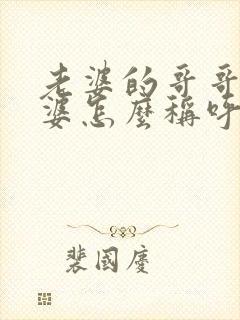 老婆的哥哥
婆怎麼稱呼
裴國慶